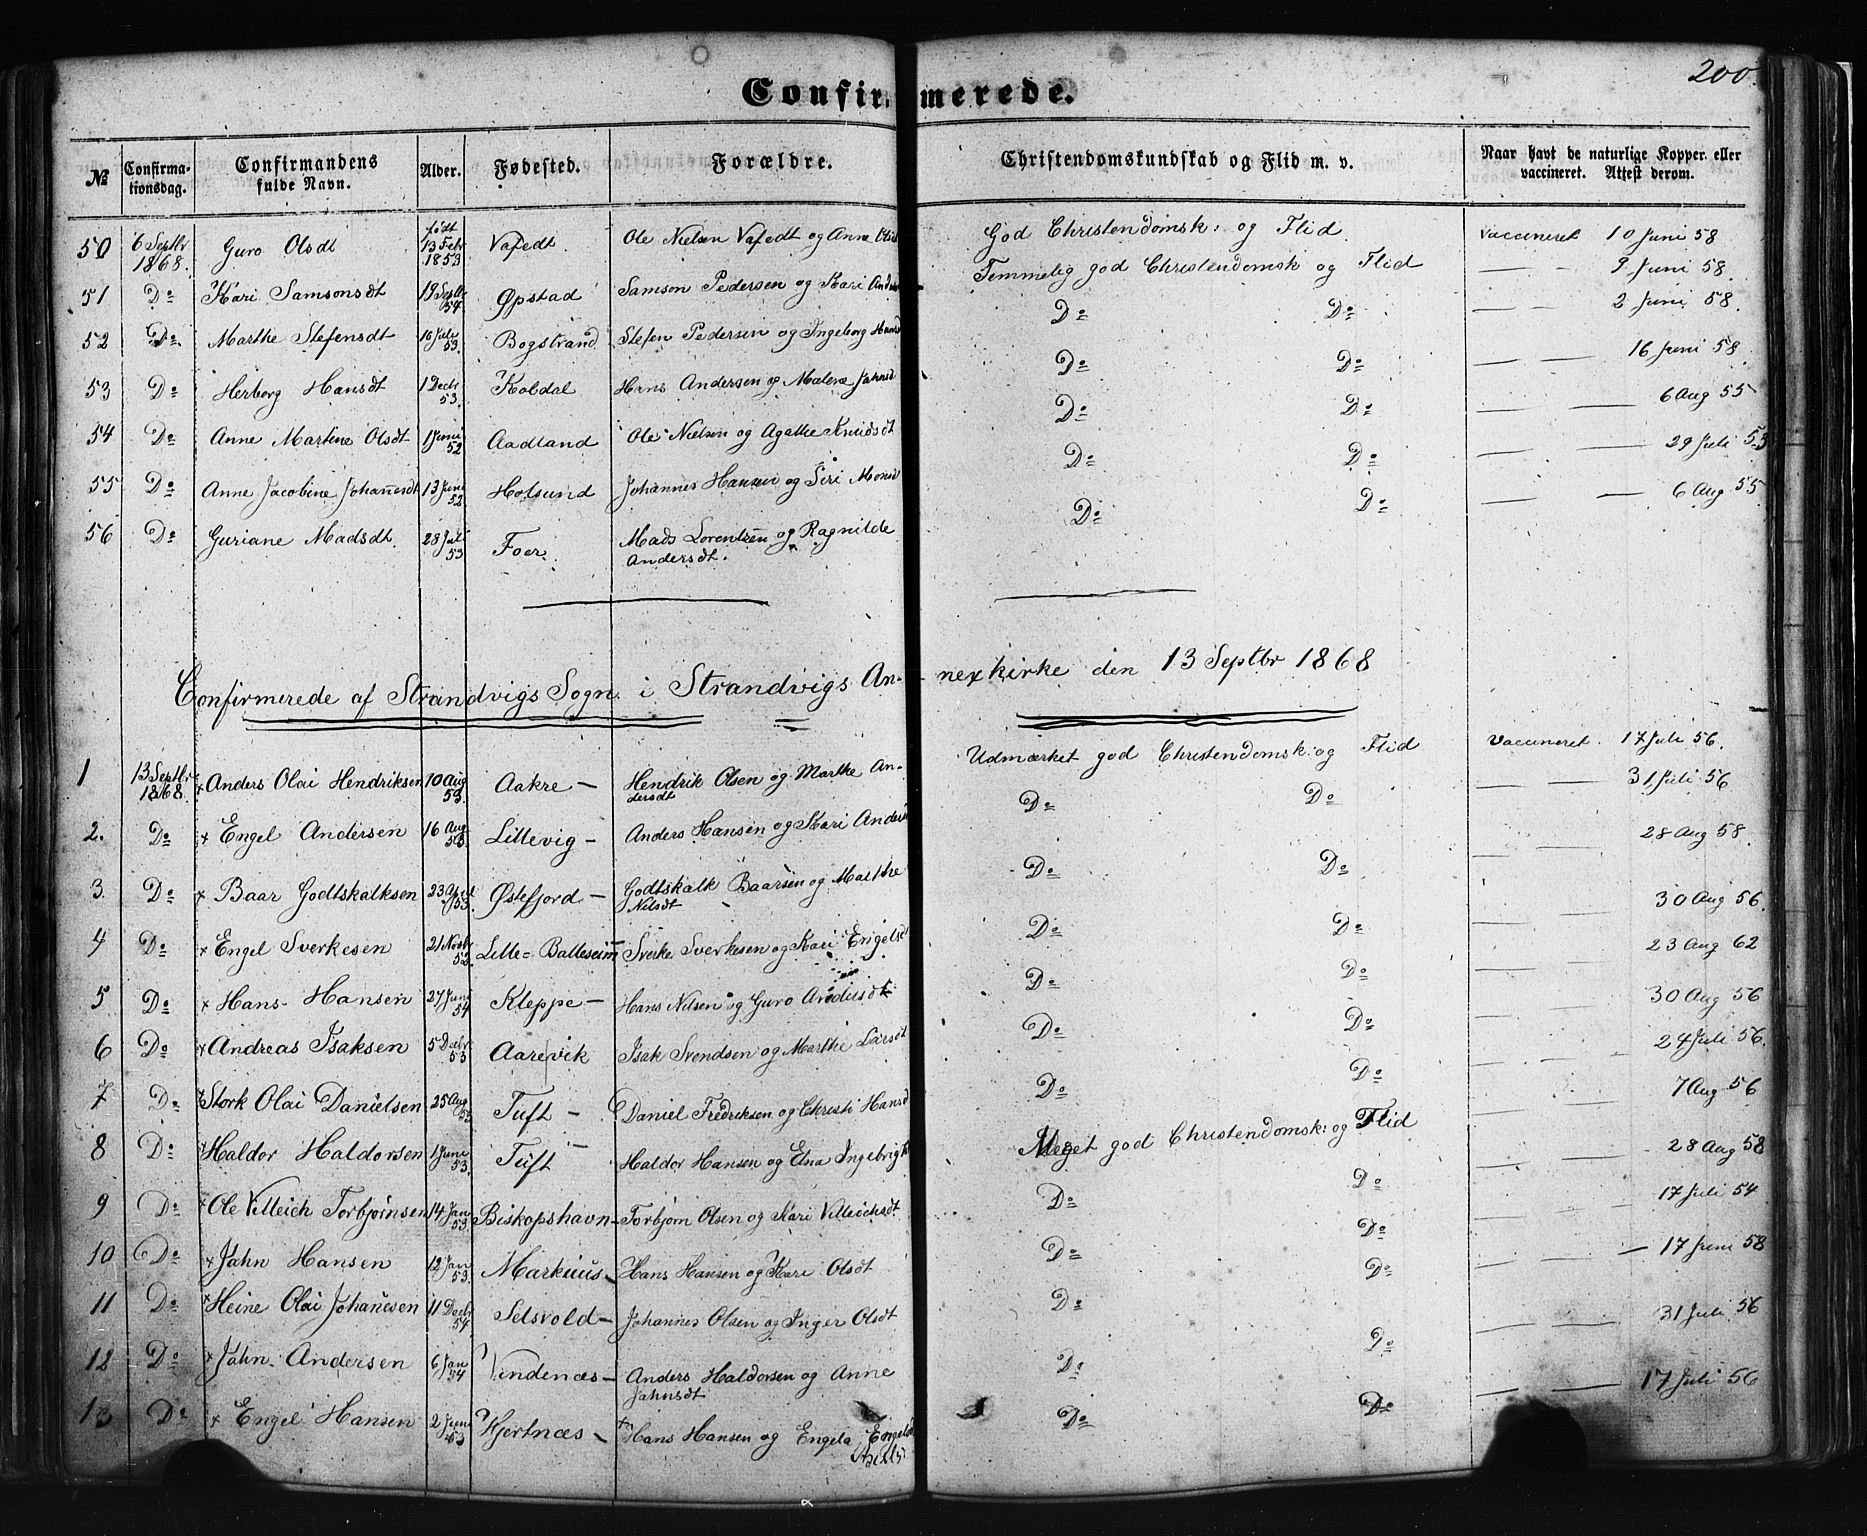 200.
Confirmerede.
№ Confirmationsdag. Confirmandens fulde Navn. Alder. Fødested. Forældre. Christendomskundskab og Flid m. v. Naar havt de naturlige Kopper eller vaccineret. Attest derom.
50 6 Septbr 1868. Guro Olsdt født 13 Febr 1853 Vafedt. Ole Nielsen Vafedt og Anna Olsd God Christendomsk: og Flid vaccineret 10 Juni 58
51 Do Kari Samsonsdt 19 Septbr 54 Øpstad Samson Pedersen og Kari Temmelig god Christendomsk og Flid — — 9 Juni 58.
52 Do Marthe Stefensdt 16 Juli 53. Bogstrand Stefen Pedersen og Ingeborg Hansd Do Do — — 2 Juni 58.
53 Do Herborg Hansdt 1 Decbr 53. Koldal Hans Andersen og Malena Jahnsd Do Do — — 16 Juni 58.
54 Do Anne Martine Olsdt 1 Juni 52 Aadland Ole Nielsen og Agathe Knudsdt Do Do — — 6 Aug 55
55 Do Anne Jacobine Johannesdt 13 Juni 52 Holsund Johannes Hansen og Siri Monsd Do Do — — 29 Juli 53
56 Do Guriane Madsdt. 28 Juli 53 Foer. Mads Lorentzen og Ragnilde Andersdt. Do Do — — 6 Aug 55
Confirmerede af Strandvigs Sogn i Strandvigs Annexkirke den 13 Septbr 1868
1 13 Septbr 1868. × Anders Olai Hendriksen 10 Aug 53. Aakre — Hendrik Olsen og Marthe Andersdt Udmærket god Christendomsk: og Flid vaccineret. 17 Juli 56.
2. Do × Engel Andersen 16 Aug 53. Lillevig — Anders Hansen og Kari Andersd Do Do — — 31 Juli 56
3. Do × Baar Godtskalksen 23 April 53. Østefjord — Godtskalk Baarsen og Marthe Nilsdt Do Do — — 28 Aug 58.
4 Do × Engel Sverkesen 21 Novbr 53. Lille=Balleseim Sverke Sverkesen og Kari Engelsd Do Do — — 30 Aug 56.
5 Do × Hans Hansen 27 Juni 54 Kleppe — Hans Nilsen og Guro Andersdt Do Do — — 23 Aug 62
6 Do × Andreas Isaksen 5 Decbr 53 Aarevik Isak Svendsen og Marthe Larsdt Do Do — — 30 Aug 56
7 Do × Stork Olai Danielsen 25 Aug 53 Tuft — Daniel Fredriksen og Christi Hansd Do Do — — 24 Juli 56.
8 Do × Haldor Haldorsen 1 Juni 53. Tuft — Haldor Hansen og Elna Meget god Christendomsk: og Flid — — 7 Aug 56
9 Do × Ole Villeich Torbjørnsen 14 Jan 53. Biskopshavn — Torbjørn Olsen og Kari Villeichsdt Do Do — — 28 Aug 58
10 Do × Jahn Hansen 12 Jan 53. Markhus — Hans Hansen og Kari Olsdt Do Do — — 17 Juli 54
11 Do × Heine Olai Johanesen 11 Decbr 54 Selsvold — Johannes Olsen og Inger Olsdt Do Do — — 17 Juni 58
12 Do × Jahn Andersen 6 Jan 54 Vindenæs — Anders Haldorsen og Anne Jahnsdt Do Do — — 31 Juli 56
13 Do × Engel Hansen 2 Juni 53 Kjertnæs — Hans Hansen og Engela Engelsd Do Do — — 17 Juli 56